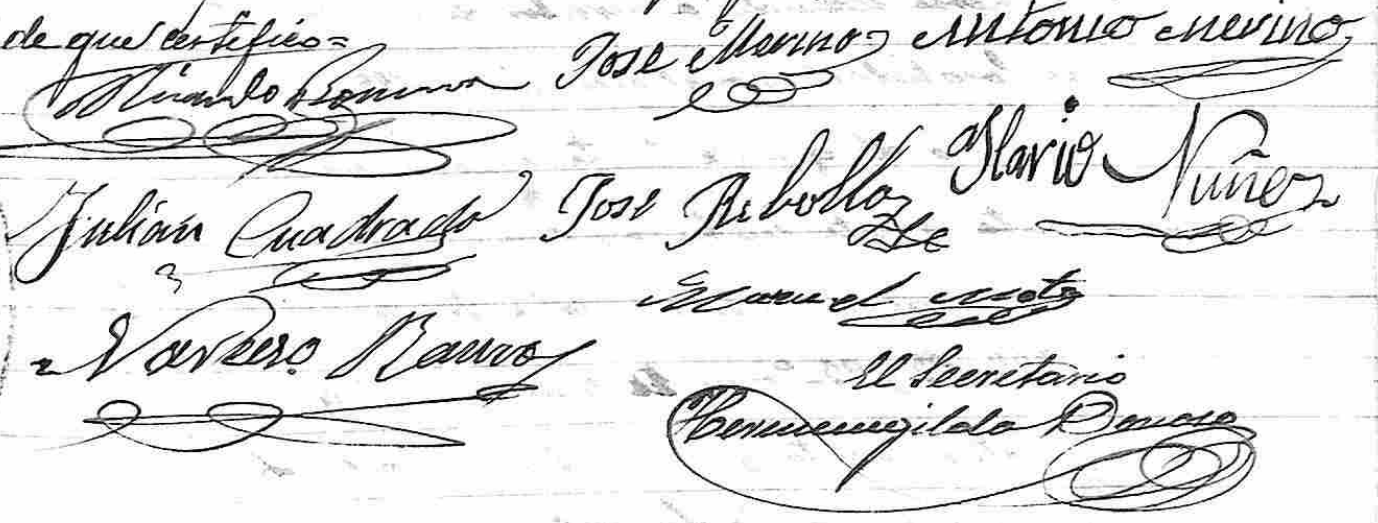 de que certifico=
José Merino Antonio Merino
Julián Cuadrado José Rebollo Ilario Nuñez
Manuel Mota
Ramos
El Secretario
Hermenegildo Donoso